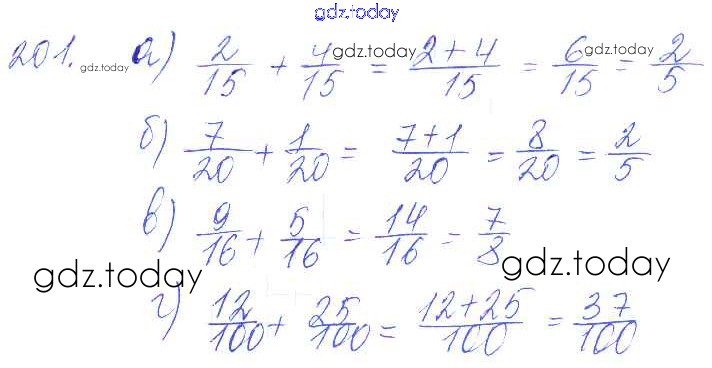 gdz.today
201. gdz.today а) 2/15 + 4/15 = gdz.today 2+4/15 = 6/15 gdz.today = 2/5
б) 7/20 + 1/20 = 7+1/20 = 8/20 = 2/5
в) 9/16 + 5/16 = 14/16 = 7/8
gdz.today gdz.today
г) 12/100 + 25/100 = 12+25/100 = 37/100